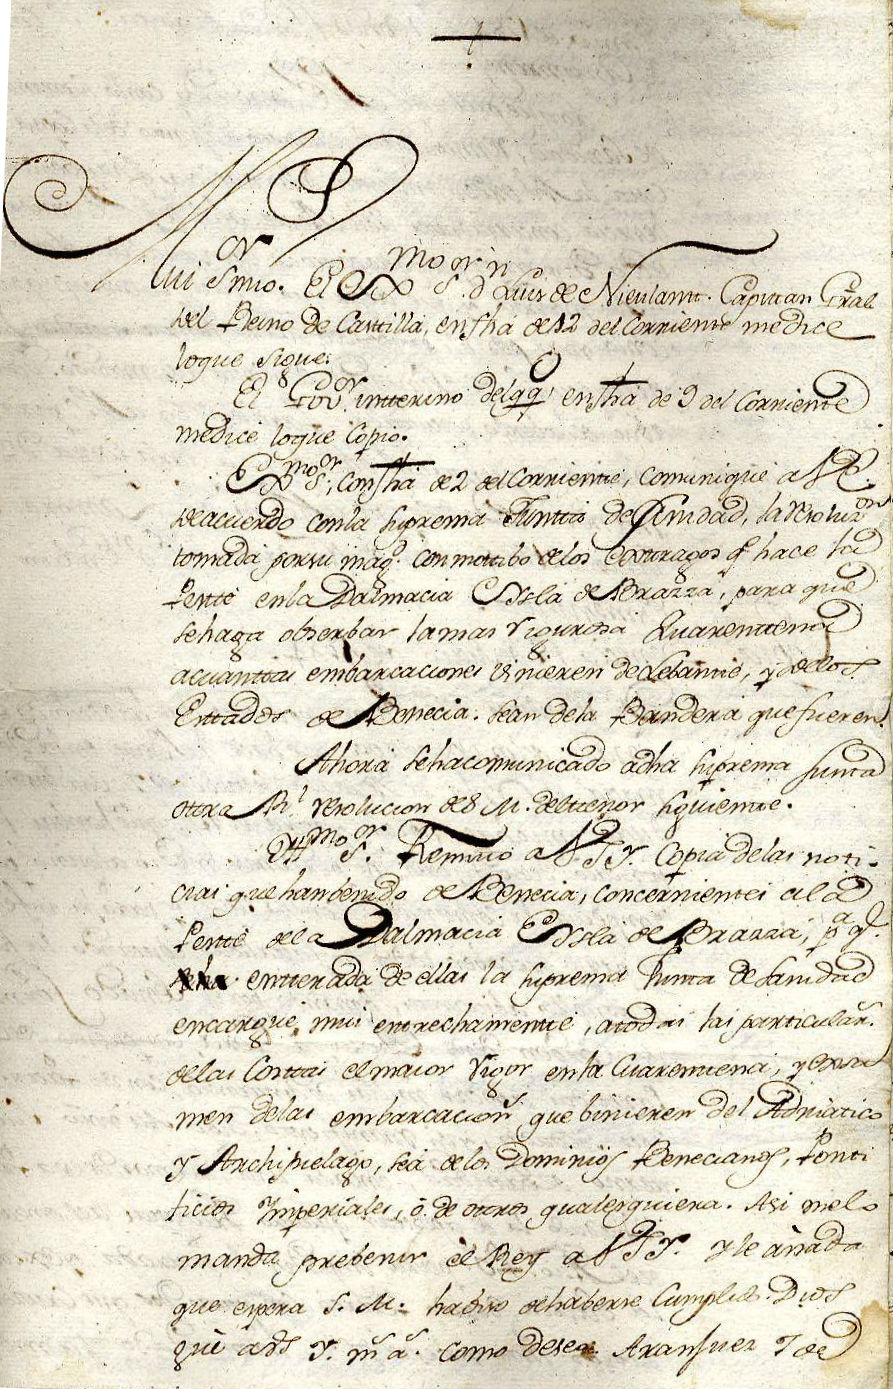 Mui S.or mio. El Exmo S.or d.n Luis de Nieulant. Capitan Gral
del Reino de Casttilla, en fha de 12 del Corriente me dice
lo que sigue.
El Gov.or intterino del en fha de 9 del Corriente
me dice lo que Copio.
Exmo S.or, Con fha de 2 del Corriente, comuniqué a V.E.
de acuerdo con la suprema Juntta de Sanidad, la resoluz.on
tomada por su mag.d con mottibo de los esttragos q.e hace la
Peste en la Dalmacia e Ysla de Brazza, para que
se haga obserbar la mas rigurosa Quarenttena
a quanttas embarcaciones vinieren de Lebante, y de los
Esttados de Benecia. sean de la Bandera que fueren.
Ahora se ha comunicado a dha suprema Junta
ottra R.l resolucion de S. M. del tenor siguiente.
Yttmo S.or. Remito a V.S.Y. Copia de las noti-
cias que han benido de Benecia, concernientes a la
Peste de la Dalmacia e Ysla de Brazza, p.a q.e
entterada de ellas la suprema Junta de Sanidad
encargue mui estrechamente, a todas las particular.s
de las Costtas el maior rigor en la Cuarentena, y exsa
men de las embarcacion.s que binieren del Adriatico
y Archipielago, sea de los Dominios Benecianos, Ponti
ficios Ymperiales, ó de otros qualesquiera. Asi me lo
manda prebenir el Rey a V.S.Y. y le añada
que espera S. M. habiso de haberse Cumplido. Dios
gue a V.S. Y. m.s a.s como deseo. Aranjuez 7 de